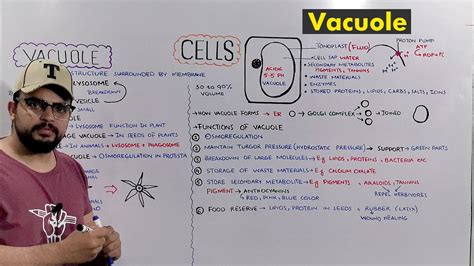 Vacuole
VACUOLE
CELLS
STRUCTURE SURROUNDED BY MEMBRANE
LYSOSOME
BREAKDOWN
VESICLE
SMALL
LYSOSOME FUNCTION IN PLANT
VACUOLE → IN SEEDS OF PLANTS
LYSOSOME + PHAGOSOME
VACUOLE → OSMOREGULATION IN PROTISTA
30 TO 90%
VOLUME
ACIDIC
5.5 PH
VACUOLE
TONOPLAST (FLUID)
CELL SAP WATER
SECONDARY METABOLITES
PIGMENTS, TANNINS
WASTE MATERIALS
ENZYMES
STORED PROTEINS, LIPIDS, CARBS, SALTS, IONS
PROTON PUMP
ATP
ADP+Pi
HOW VACUOLE FORMS → ER → GOLGI COMPLEX → JOINED
FUNCTIONS OF VACUOLE
① OSMOREGULATION
② MAINTAIN TURGOR PRESSURE (HYDROSTATIC PRESSURE) → SUPPORT → GREEN PARTS
③ BREAKDOWN OF LARGE MOLECULES → E.g LIPIDS, PROTEINS, BACTERIA ETC
④ STORAGE OF WASTE MATERIALS → E.g CALCIUM OXALATE
⑤ STORE SECONDARY METABOLITE → E.g PIGMENTS, ALKALOIDS, TANNINS
PIGMENT → ANTHOCYANINS
REPEL HERBIVORES
RED, PINK, BLUE COLOR
⑥ FOOD RESERVE → LIPIDS, PROTEIN IN SEEDS + RUBBER (LATIX)
WOUND HEALING
T